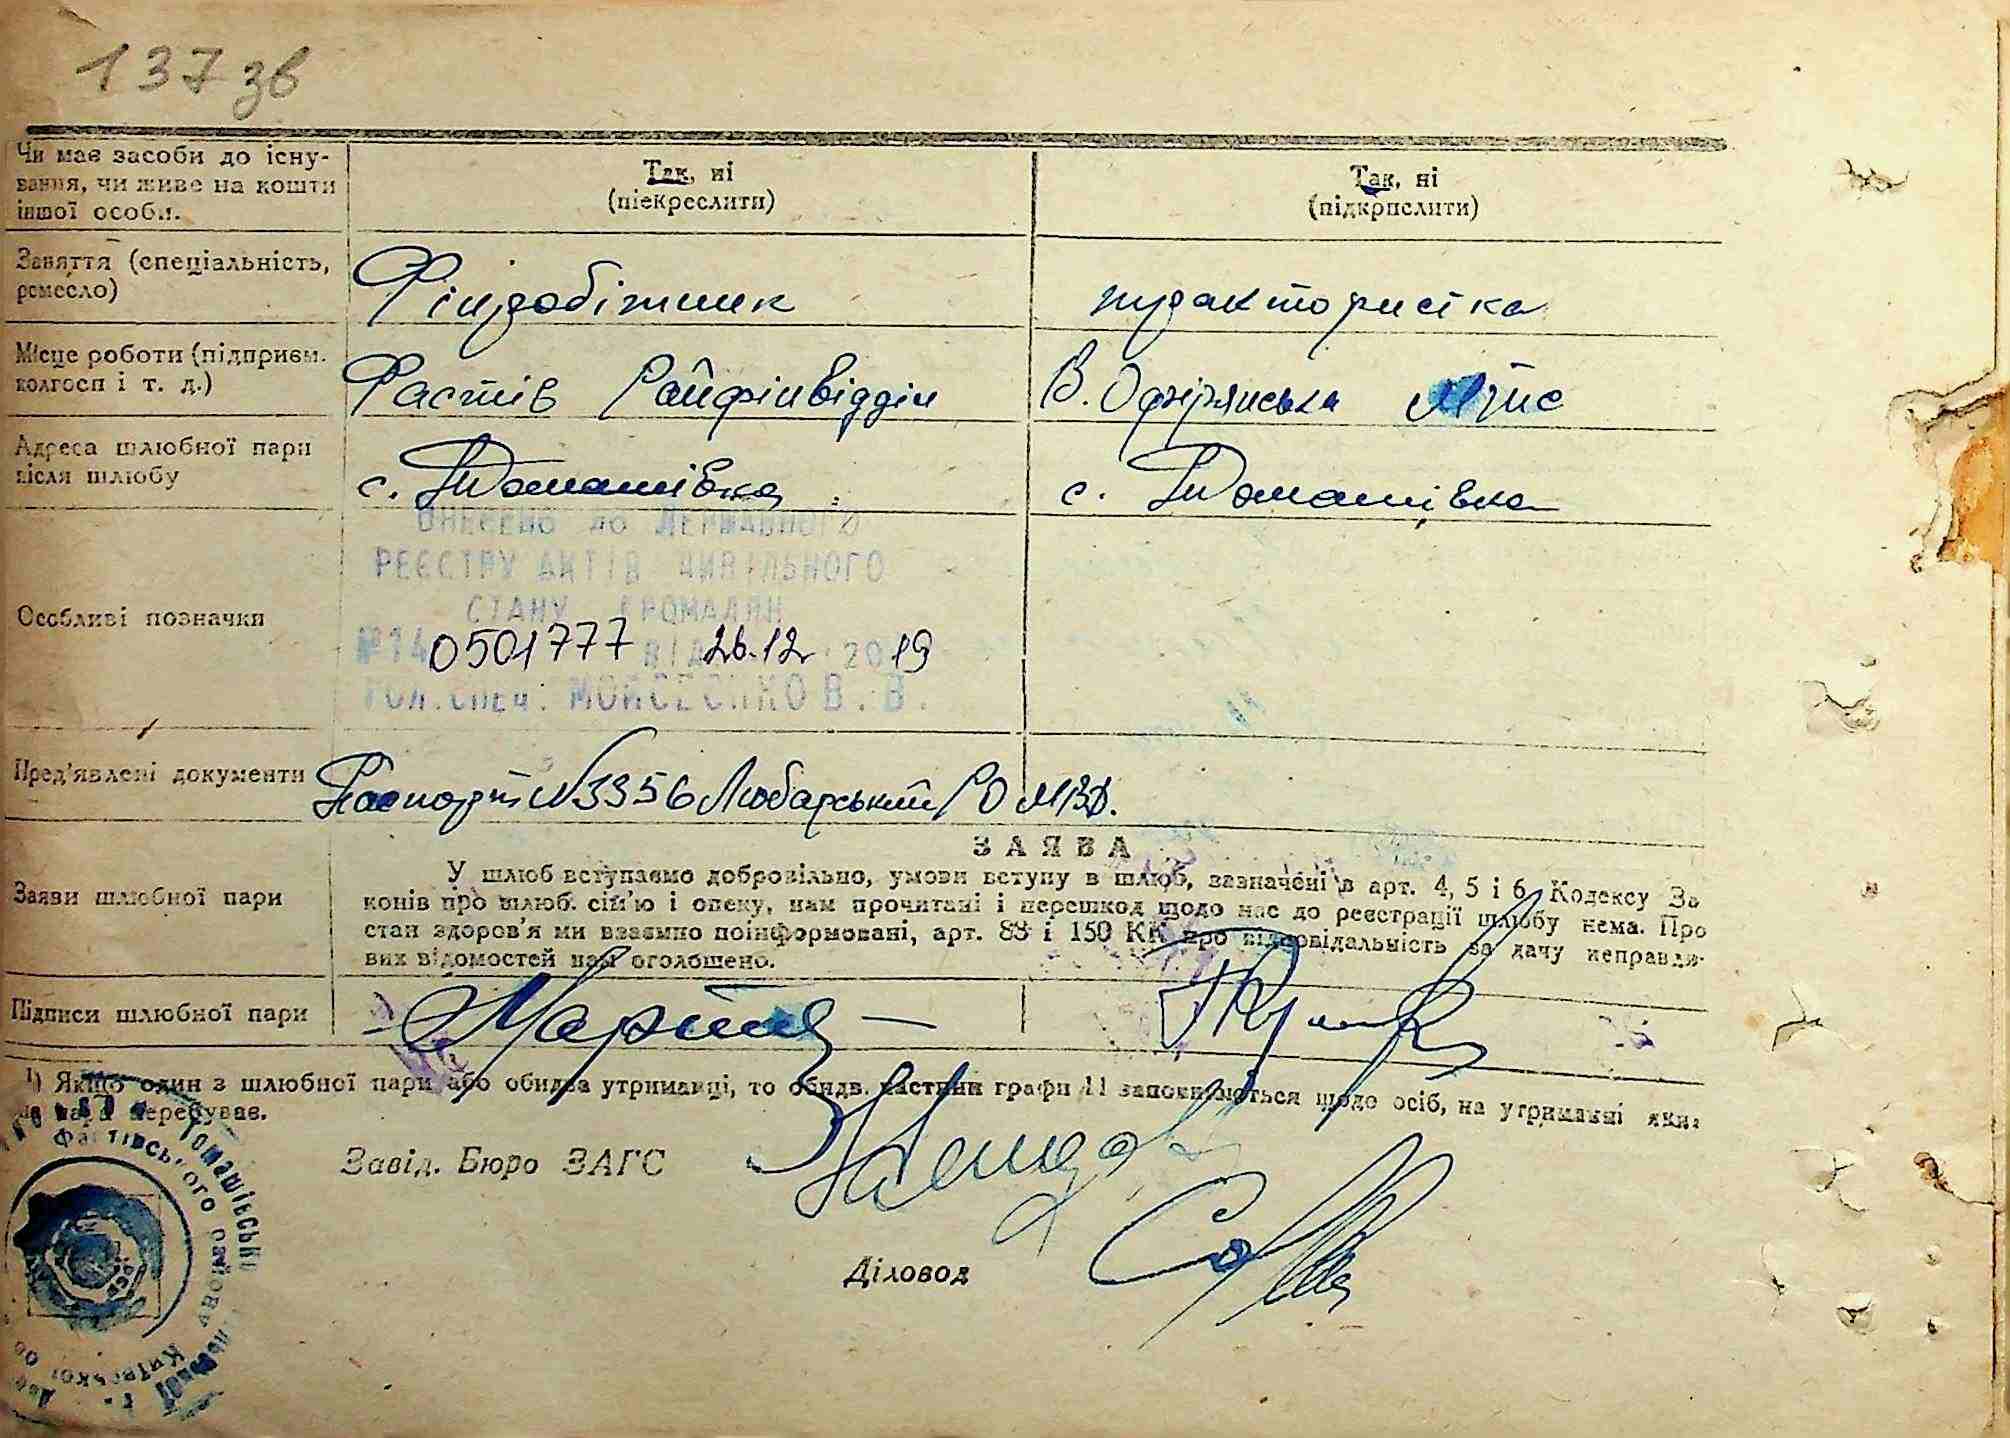 137 зв
Чи має засоби до існу-
вання, чи живе на кошти
іншої особи.
Так, ні
(піекреслити)
Так, ні
(підкрпслити)
Заняття (спеціальність,
ремесло)
Фінробітник
трактористка
Місце роботи (підприєм.
колгосп і т. д.)
Фастів Райфінвідділ
В. Офірянська МТС
Адреса шлюбної пари
після шлюбу
с. Томашівка
с. Томашівка
Особливі позначки
ВНЕСЕНО ДО ДЕРЖАВНОГО
РЕЄСТРУ АКТІВ ЦИВІЛЬНОГО
СТАНУ ГРОМАДЯН
№14 0501777 ВІД 26.12 2019
ГОЛ.СПЕЦ. МОЙСЕЄНКО В. В.
Пред'явлені документи
Паспорт №3356 Любарський РО МВД.
ЗАЯВА
Заяви шлюбної пари
У шлюб вступаємо добровільно, умови вступу в шлюб, зазначені в арт. 4, 5 і 6 Кодексу За
конів про шлюб. сім'ю і опеку, нам прочитані і перешкод щодо нас до реєстрації шлюбу нема. Про
стан здоров'я ми взаємно поінформовані, арт. 88 і 150 КК про відповідальність за дачу неправди-
вих відомостей нам оголошено.
Підписи шлюбної пари
1) Якщо один з шлюбної пари або обидва утриманці, то обидв. частини графи 11 заповнюються щодо осіб, на утриманні яких
ця пара перебуває.
Завід. Бюро ЗАГС
Діловод
Томашівська
Фастівського району
Київської